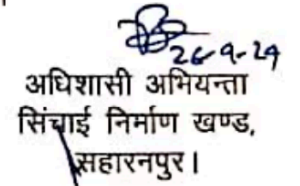 26-9-24
अधिशासी अभियन्ता
सिंचाई निर्माण खण्ड,
सहारनपुर।